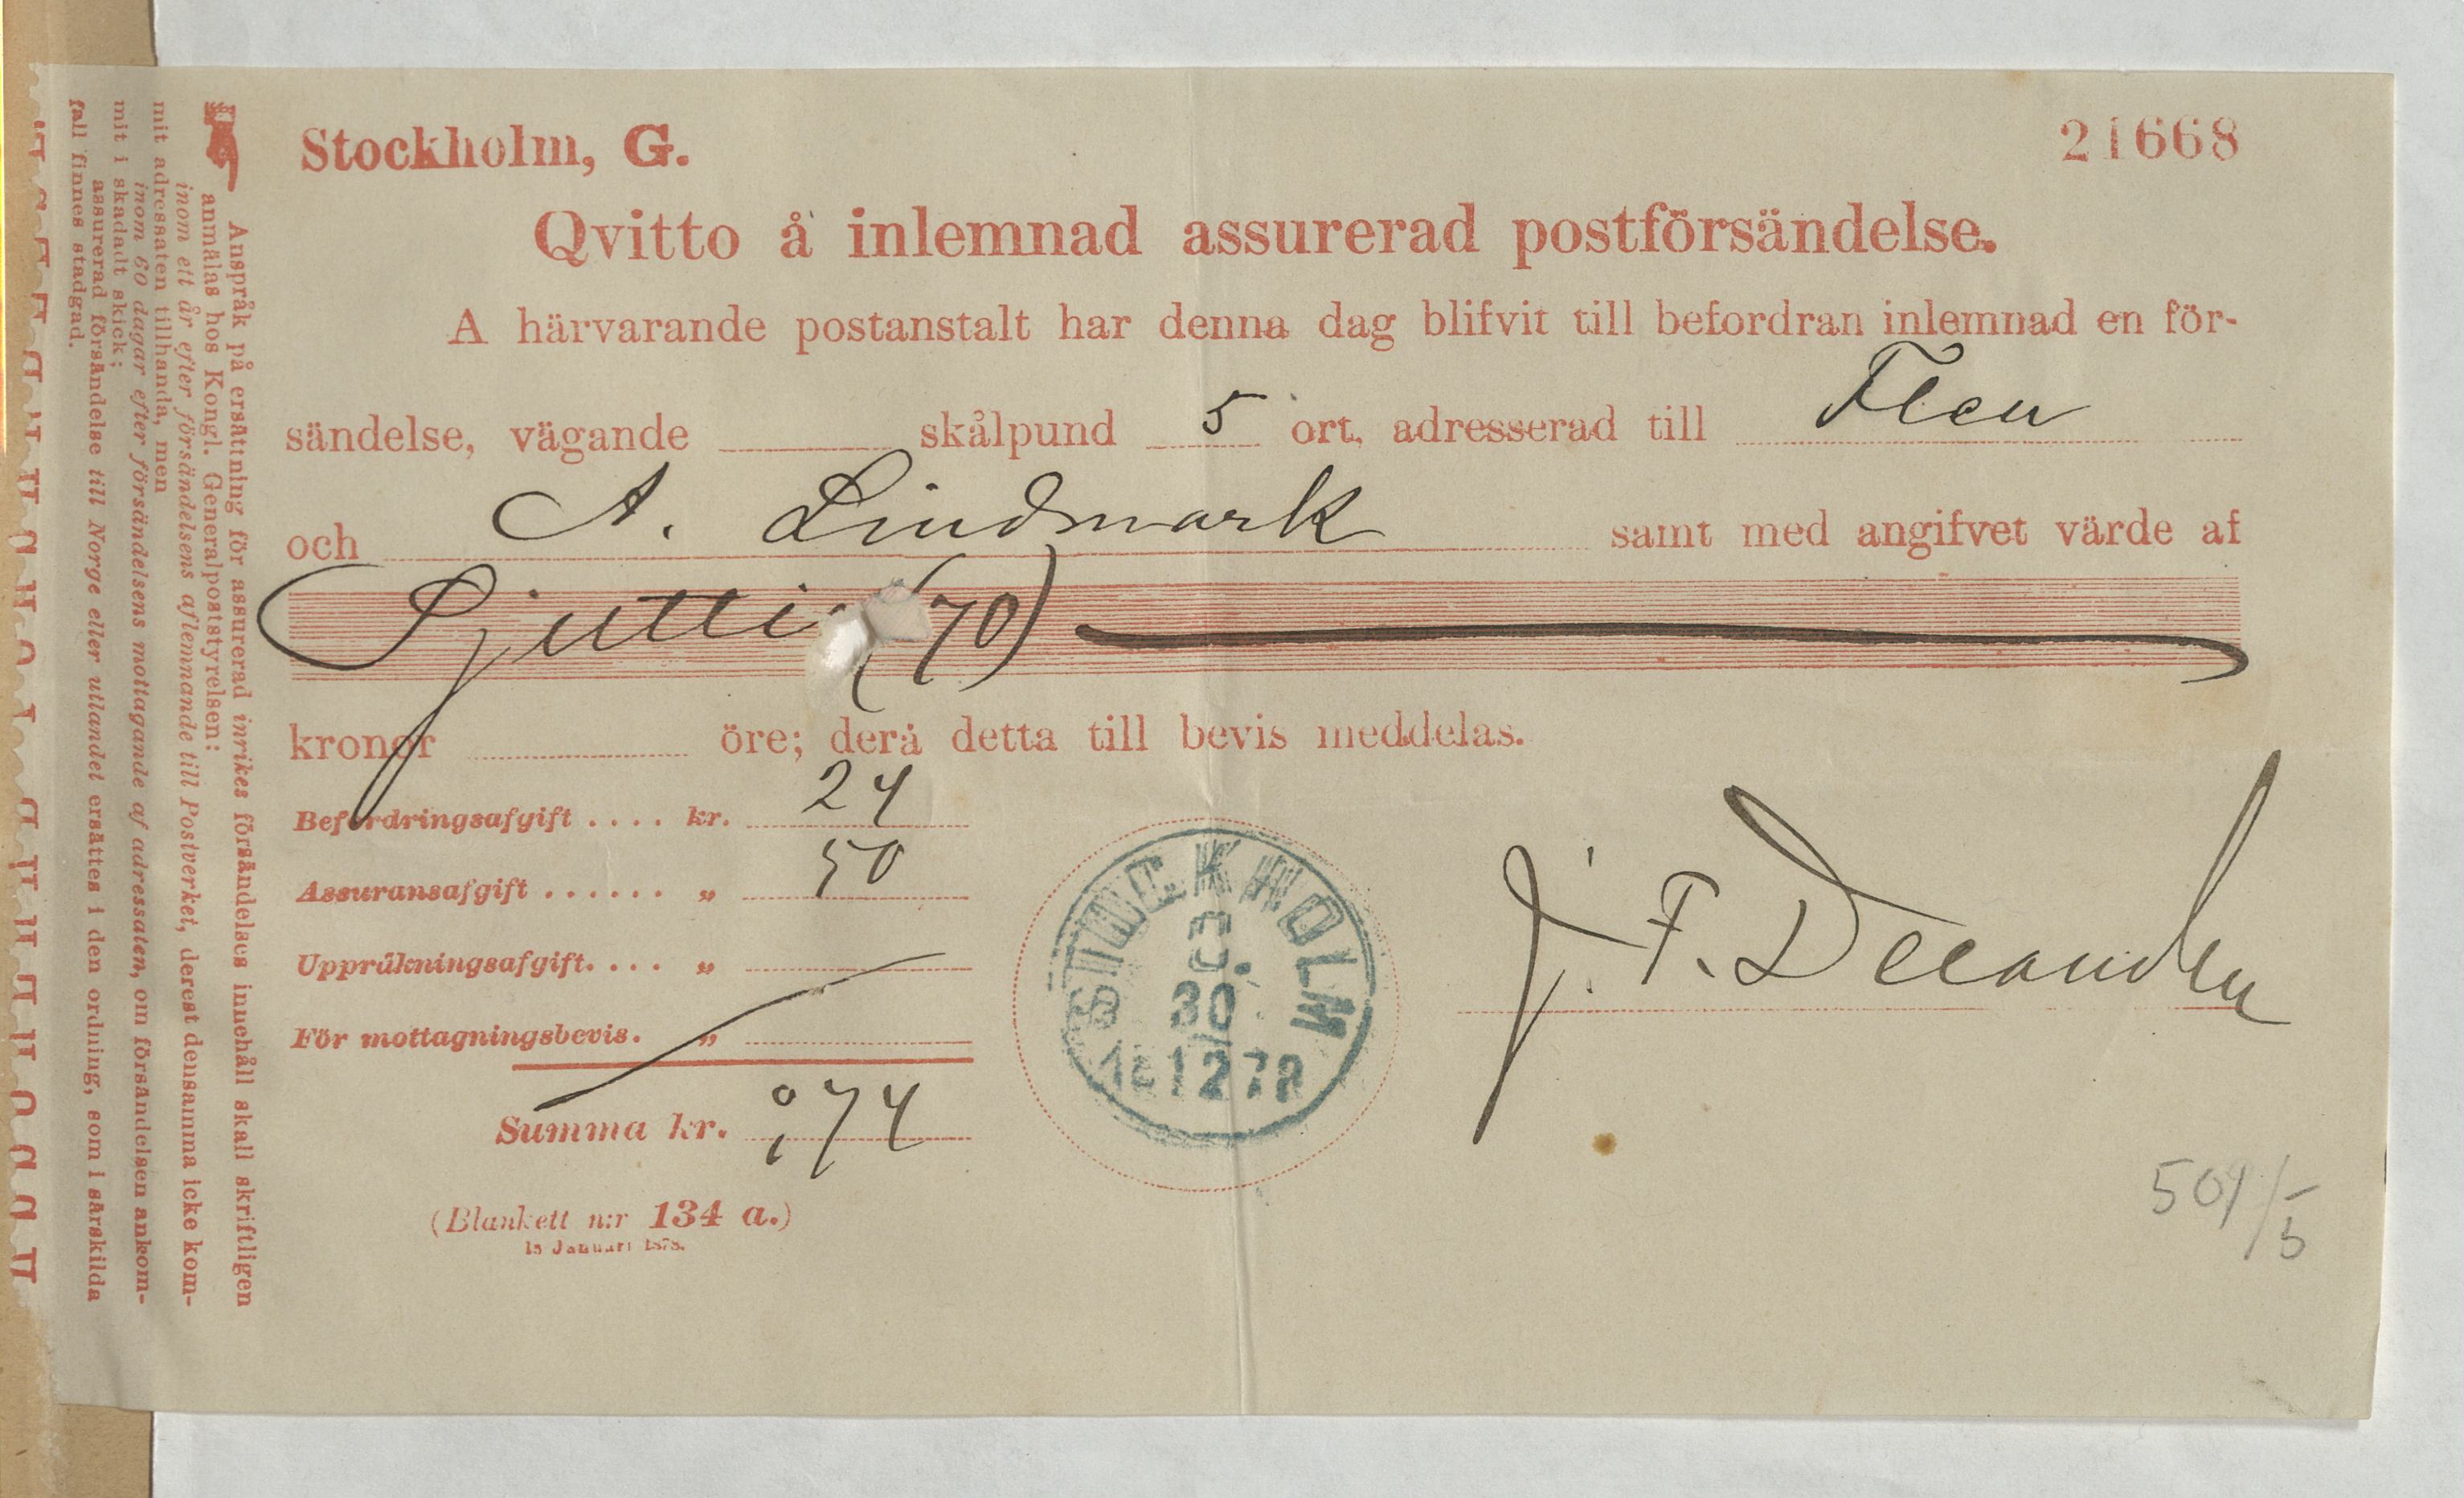 Stockholm, G.
21668
Qvitto å inlemnad assurerad postförsändelse.
A härvarande postanstalt har denna dag blifvit till befordran inlemnad en för-
sändelse, vägande skålpund 5 ort, adresserad till Flen
och A. Lindmark samt med angifvet värde af
(70)
kronor öre; derå detta till bevis meddelas.
Befordringsafgift .... kr. 24
Assuransafgift ...... „ 50
Uppräkningsafgift. ... „
För mottagningsbevis. „
Summa kr. 0,74
(Blankett n:r 134 a.)
18 Januari 1878.
STOCKHOLM
30
12 78
J. F.
Anspråk på ersättning för assurerad inrikes försändelses innehåll skall skriftligen
anmälas hos Kongl. Generalpoststyrelsen:
inom ett år efter försändelsens aflemnande till Postverket, derest densamma icke kom-
mit adressaten tillhanda, men
inom 60 dagar efter försändelsens mottagande af adressaten, om försändelsen ankom-
mit i skadadt skick;
assurerad försändelse till Norge eller utlandet ersättes i den ordning, som i särskilda
fall finnes stadgad.